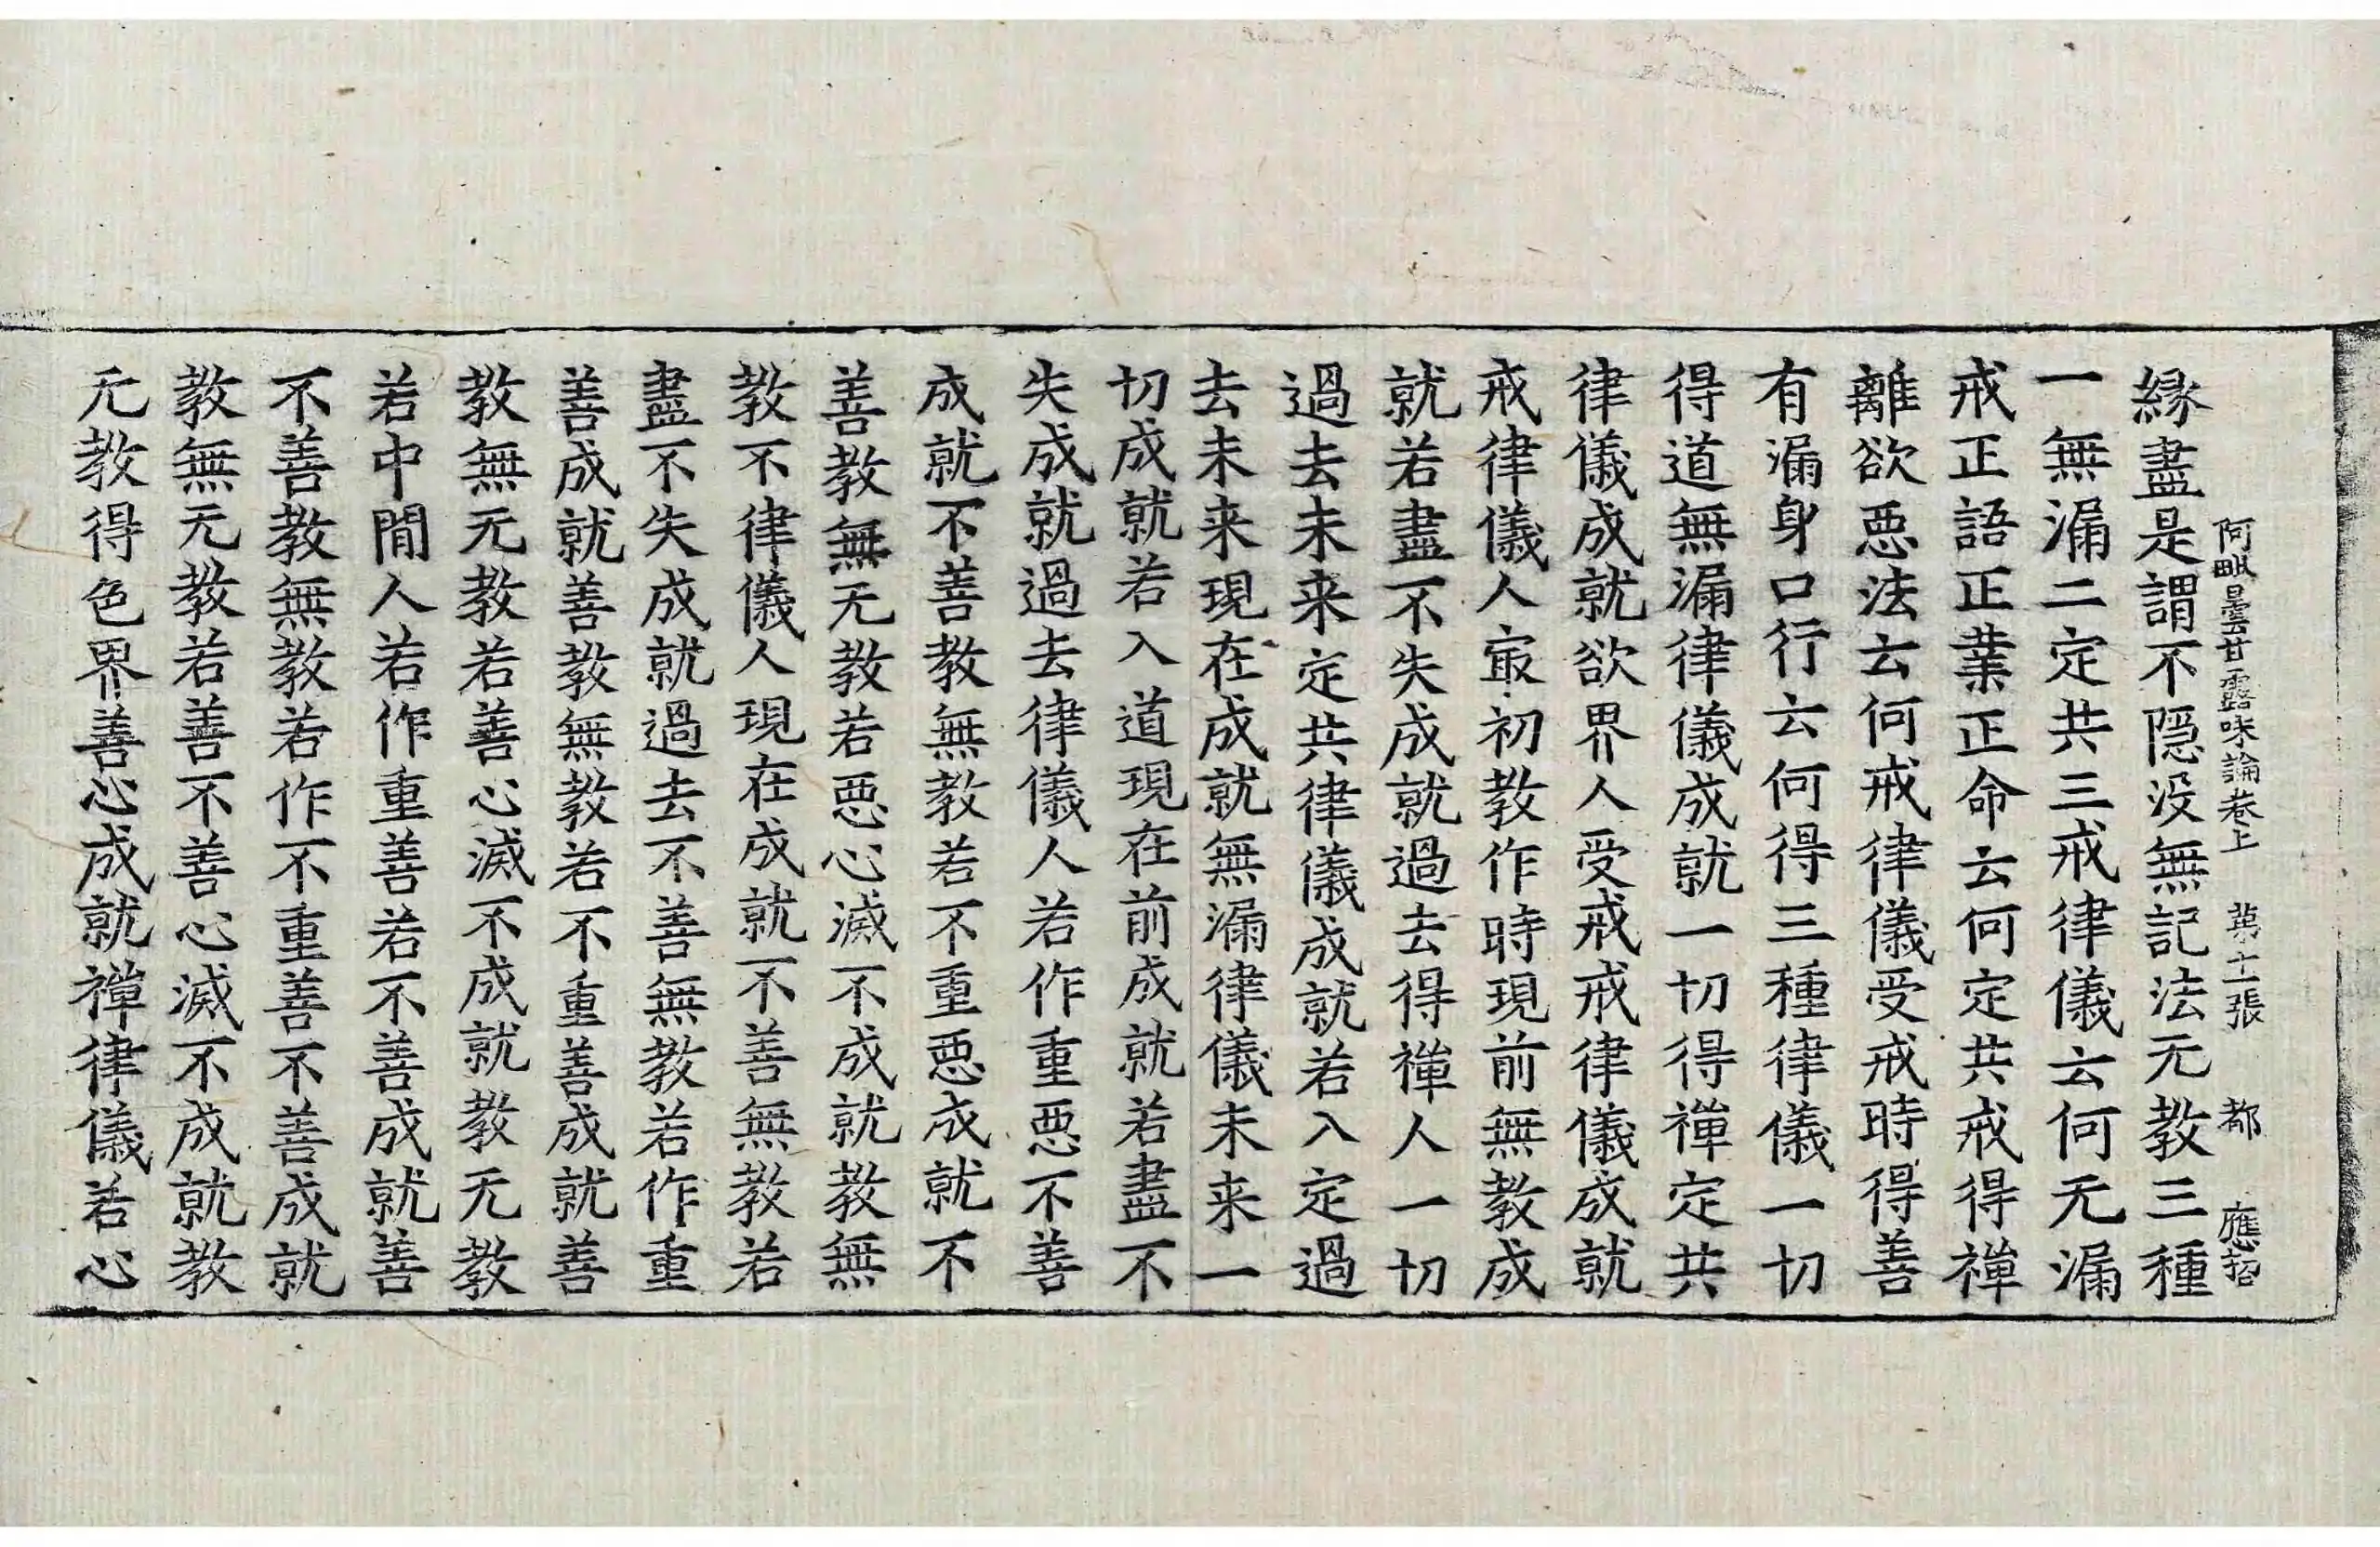 阿毗曇甘露味論卷上　第十一張　都　應招
縁盡是謂不隠没無記法无教三種
一無漏二定共三戒律儀云何无漏
戒正語正業正命云何定共戒得禪
離欲惡法云何戒律儀受戒時得善
有漏身口行云何得三種律儀一切
得道無漏律儀成就一切得禪定共
律儀成就欲界人受戒戒律儀成就
戒律儀人㝡初教作時現前無教成
就若盡不失成就過去得禪人一切
過去未来定共律儀成就若入定過
去未来現在成就無漏律儀未来一
切成就若入道現在前成就若盡不
失成就過去律儀人若作重惡不善
成就不善教無教若不重惡成就不
善教無无教若惡心滅不成就教無
教不律儀人現在成就不善無教若
盡不失成就過去不善無教若作重
善成就善教無教若不重善成就善
教無无教若善心滅不成就教无教
若中閒人若作重善若不善成就善
不善教無教若作不重善不善成就
教無无教若善不善心滅不成就教
无教得色界善心成就禪律儀若心